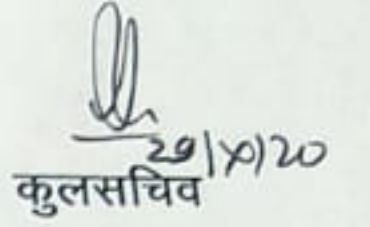 29|X|20
कुलसचिव